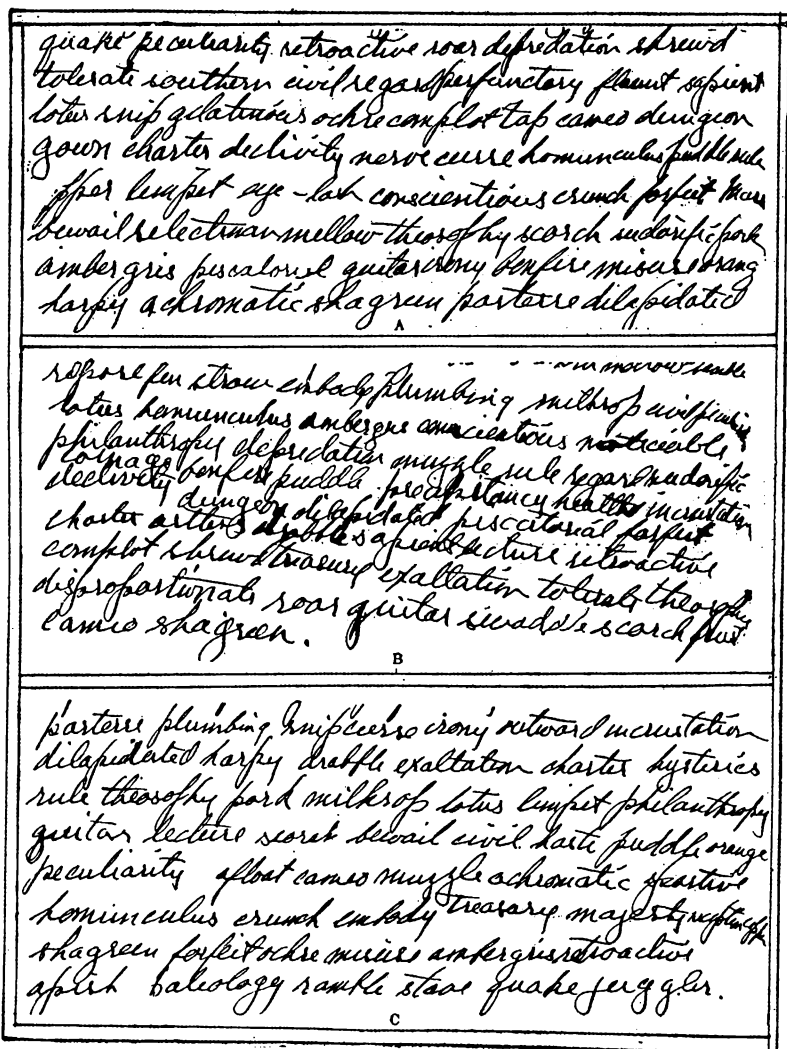 quake peculiarity retroactive roar depredation shrewd
tolerate southern civil regard perfunctory flaunt sapient
lotus snip gelatinous ochre complot tap cameo dungeon
gown charter declivity nerve curse homunculus puddle rule
limpet eye-lash conscientious crunch forfeit
bewail selectman mellow theosophy scorch sudorific pork
ambergris piscatorial guitar irony bonfire misuse orang
harpy achromatic shagreen parterre dilapidated
A
morrow
repose pen straw embody plumbing milksop civil
lotus homunculus ambergris conscientious noticeable
philanthropy depredation muzzle rule regard sudorific
coinage bonfire puddle precipitancy health incrustation
declivity dungeon dilapidated piscatorial forfeit
charter drabble sapient lecture retroactive
complot shrewd treasure exaltation tolerate theosophy
disproportionate roar guitar swaddle scorch
cameo shagreen.
B
parterre plumbing snip curse irony outward incrustation
dilapidated harpy drabble exaltation charter hysterics
rule theosophy pork milksop lotus limpet philanthropy
guitar lecture scorch bewail civil haste puddle orange
peculiarity afloat cameo muzzle achromatic sportive
homunculus crunch embody treasure majesty
shagreen forfeit ochre misuse ambergris retroactive
apish ramble stave quake juggler.
C